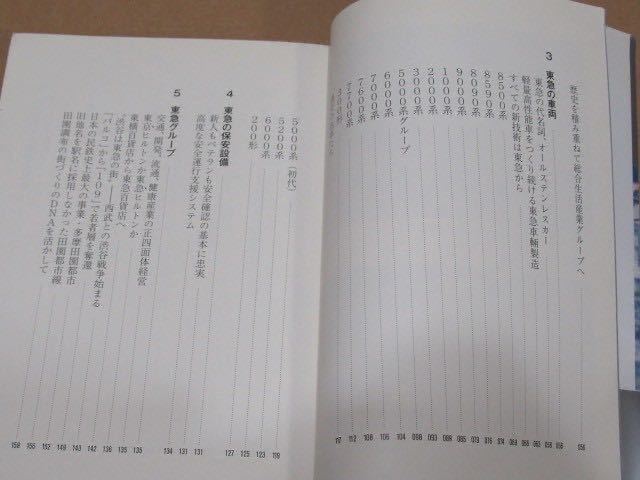 歴史を積み重ねて総合生活産業グループへ 056
3 東急の車両 058
東急の代名詞、オールステンレスカー 058
軽量高性能車をつくり続ける東急車輛製造
すべての新技術は東急から
8500系
8590系
8090系
9000系
1000系
2000系
3000系
5000系グループ 104
6000系 106
7000系 108
7600系 112
7700系 117
5000系(初代) 119
5200系 123
6000系 125
200形 127
4 東急の保安設備 131
新人もベテランも安全確認の基本に忠実 131
高度な安全運行支援システム
5 東急グループ 134
交通、開発、流通、健康産業の正四面体経営 135
東京ヒルトンか東急ヒルトンか 135
東横百貨店から東急百貨店へ 136
「渋谷は東急の街」――西武との渋谷戦争始まる 142
「パルコ」から「109」で若者層を奪還 143
日本の民鉄史上最大の事業・多摩田園都市 149
旧地名を駅名に採用しなかった田園都市線 152
田園調布の街づくりのDNAを活かして